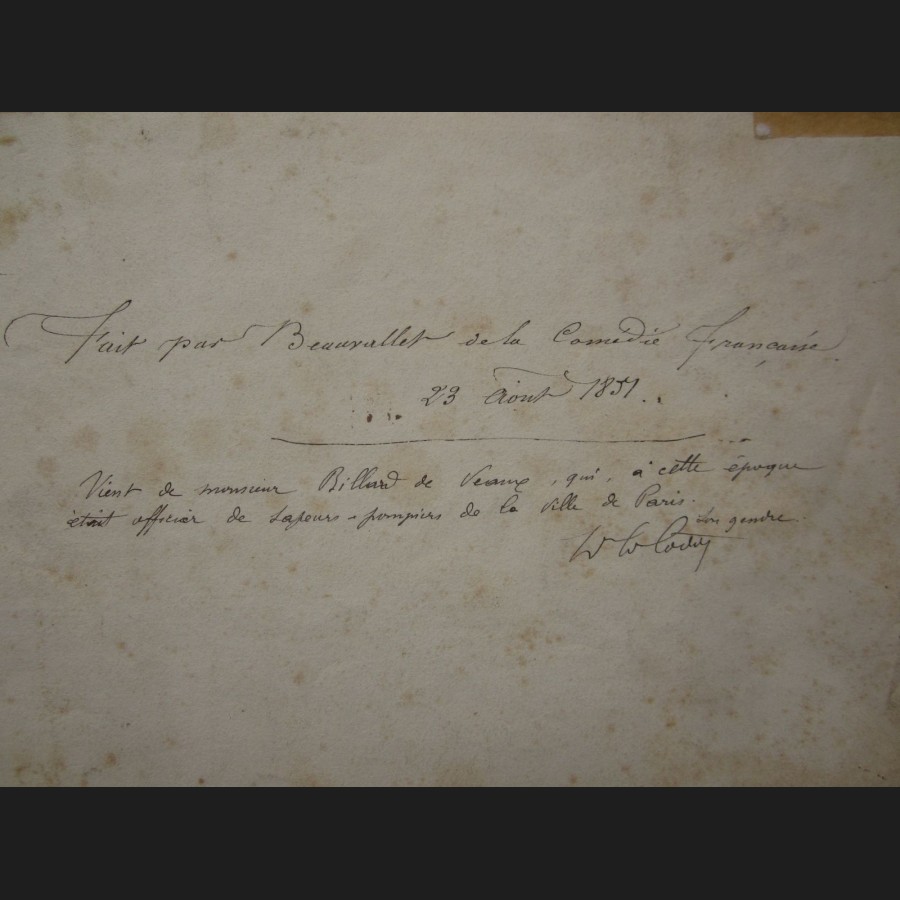 Fait par Beauvallet de la Comédie française.
23 Août 1851.
Vient de monsieur Billard de Veaux, qui, à cette époque
était officier de sapeurs-pompiers de la ville de Paris.
Son gendre.